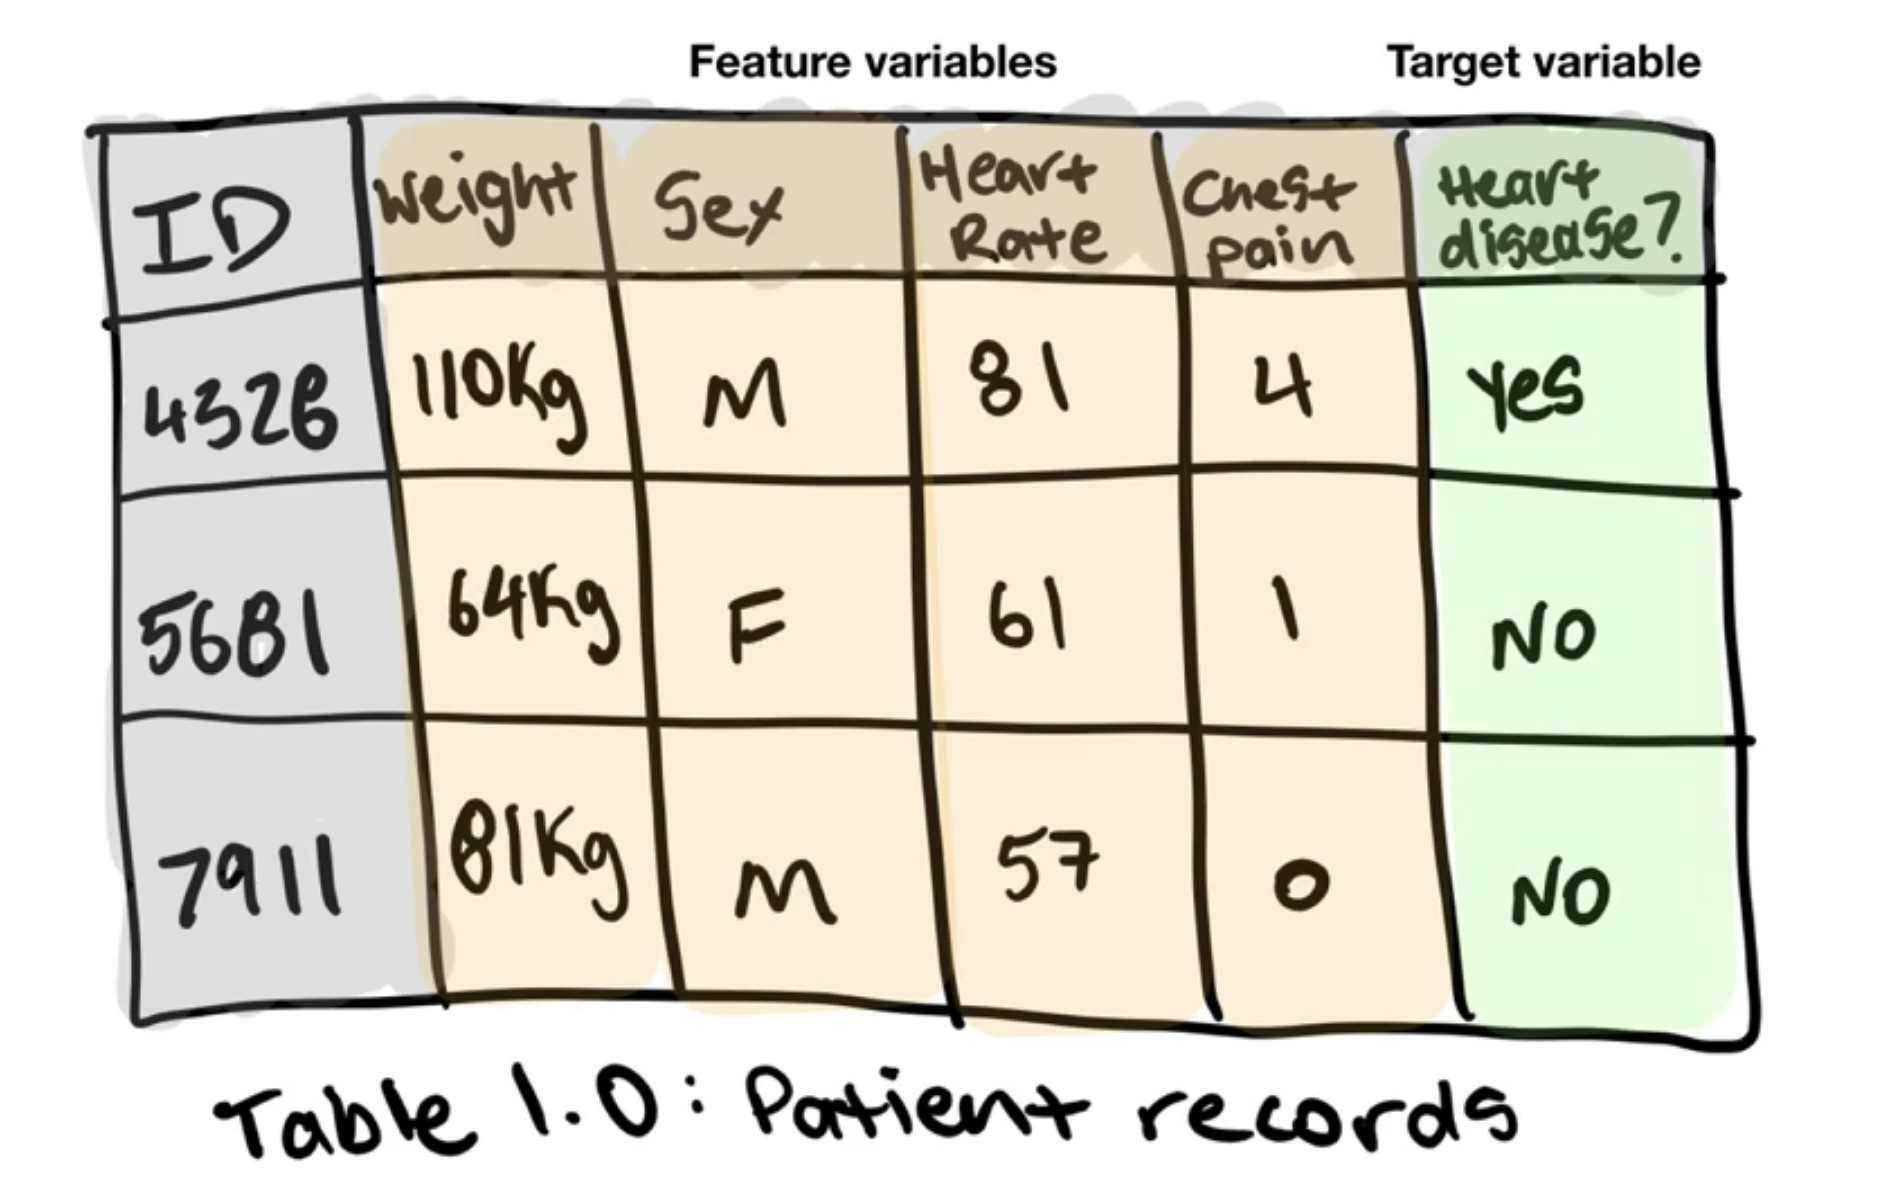 Feature variables Target variable
ID Weight Sex Heart Rate Chest pain Heart disease?
4326 110Kg M 81 4 Yes
5681 64Kg F 61 1 NO
7911 81Kg M 57 0 NO
Table 1.0: Patient records